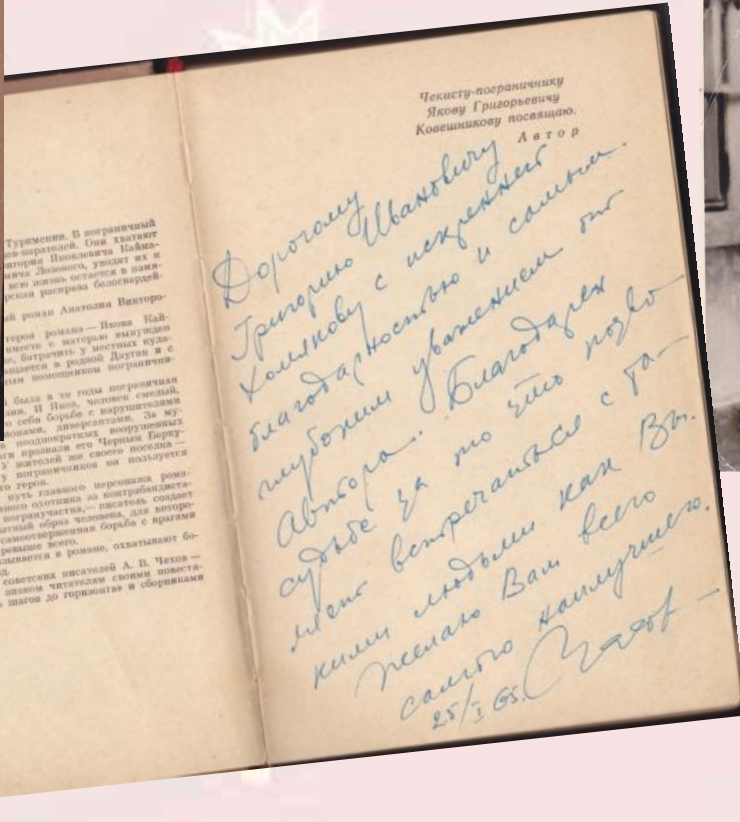 Туркмении. В пограничный
Они хватают
григория Яковлевича Кайма-
мича Лозового, уводят их и
всю жизнь остается в памя-
рская расправа белогвардей-
ый роман Анатолия Викторо-
героя романа — Якова Кай-
вместе с матерью вынужден
батрачить у местных кула-
щается в родной Даутан и с
ным помощником погранични-
была в те годы пограничная
И Яков, человек смелый,
себя борьбе с нарушителями
диверсантами. За му-
неоднократных вооруженных
ги прозвали его Черным Берку-
У жителей же своего поселка —
у пограничников он пользуется
го героя.
путь главного персонажа рома-
ного охотника за контрабандиста-
погранучастка,— писатель создает
атный образ человека, для которо-
самоотверженная борьба с врагами
превыше всего.
зывается в романе, охватывают бо-
советских писателей А. В. Чехов —
знаком читателям своими повестя-
шагов до горизонта» и сборниками
Чекисту-пограничнику
Якову Григорьевичу
Ковешникову посвящаю.
Автор
Дорогому
Григорию Ивановичу
Хомякову с искренней
благодарностью и самым
глубоким уважением от
Автора. Благодарен
судьбе за то что позво-
ляет встречаться с та-
кими людьми как Вы.
Желаю Вам всего
самого наилучшего.
25/I 85.